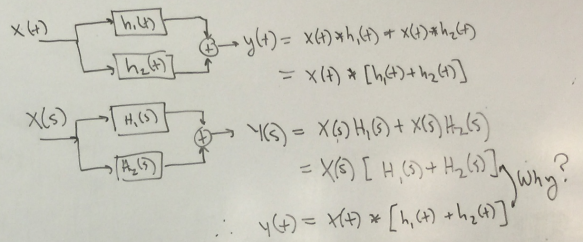 x(t) h₁(t) h₂(t) + y(t) = x(t)*h₁(t) + x(t)*h₂(t)
= x(t) * [h₁(t)+h₂(t)]
X(s) H₁(s) H₂(s) + Y(s) = X(s)H₁(s) + X(s)H₂(s)
= X(s) [ H₁(s) + H₂(s)] Why?
∴ y(t) = x(t) * [h₁(t) + h₂(t)]